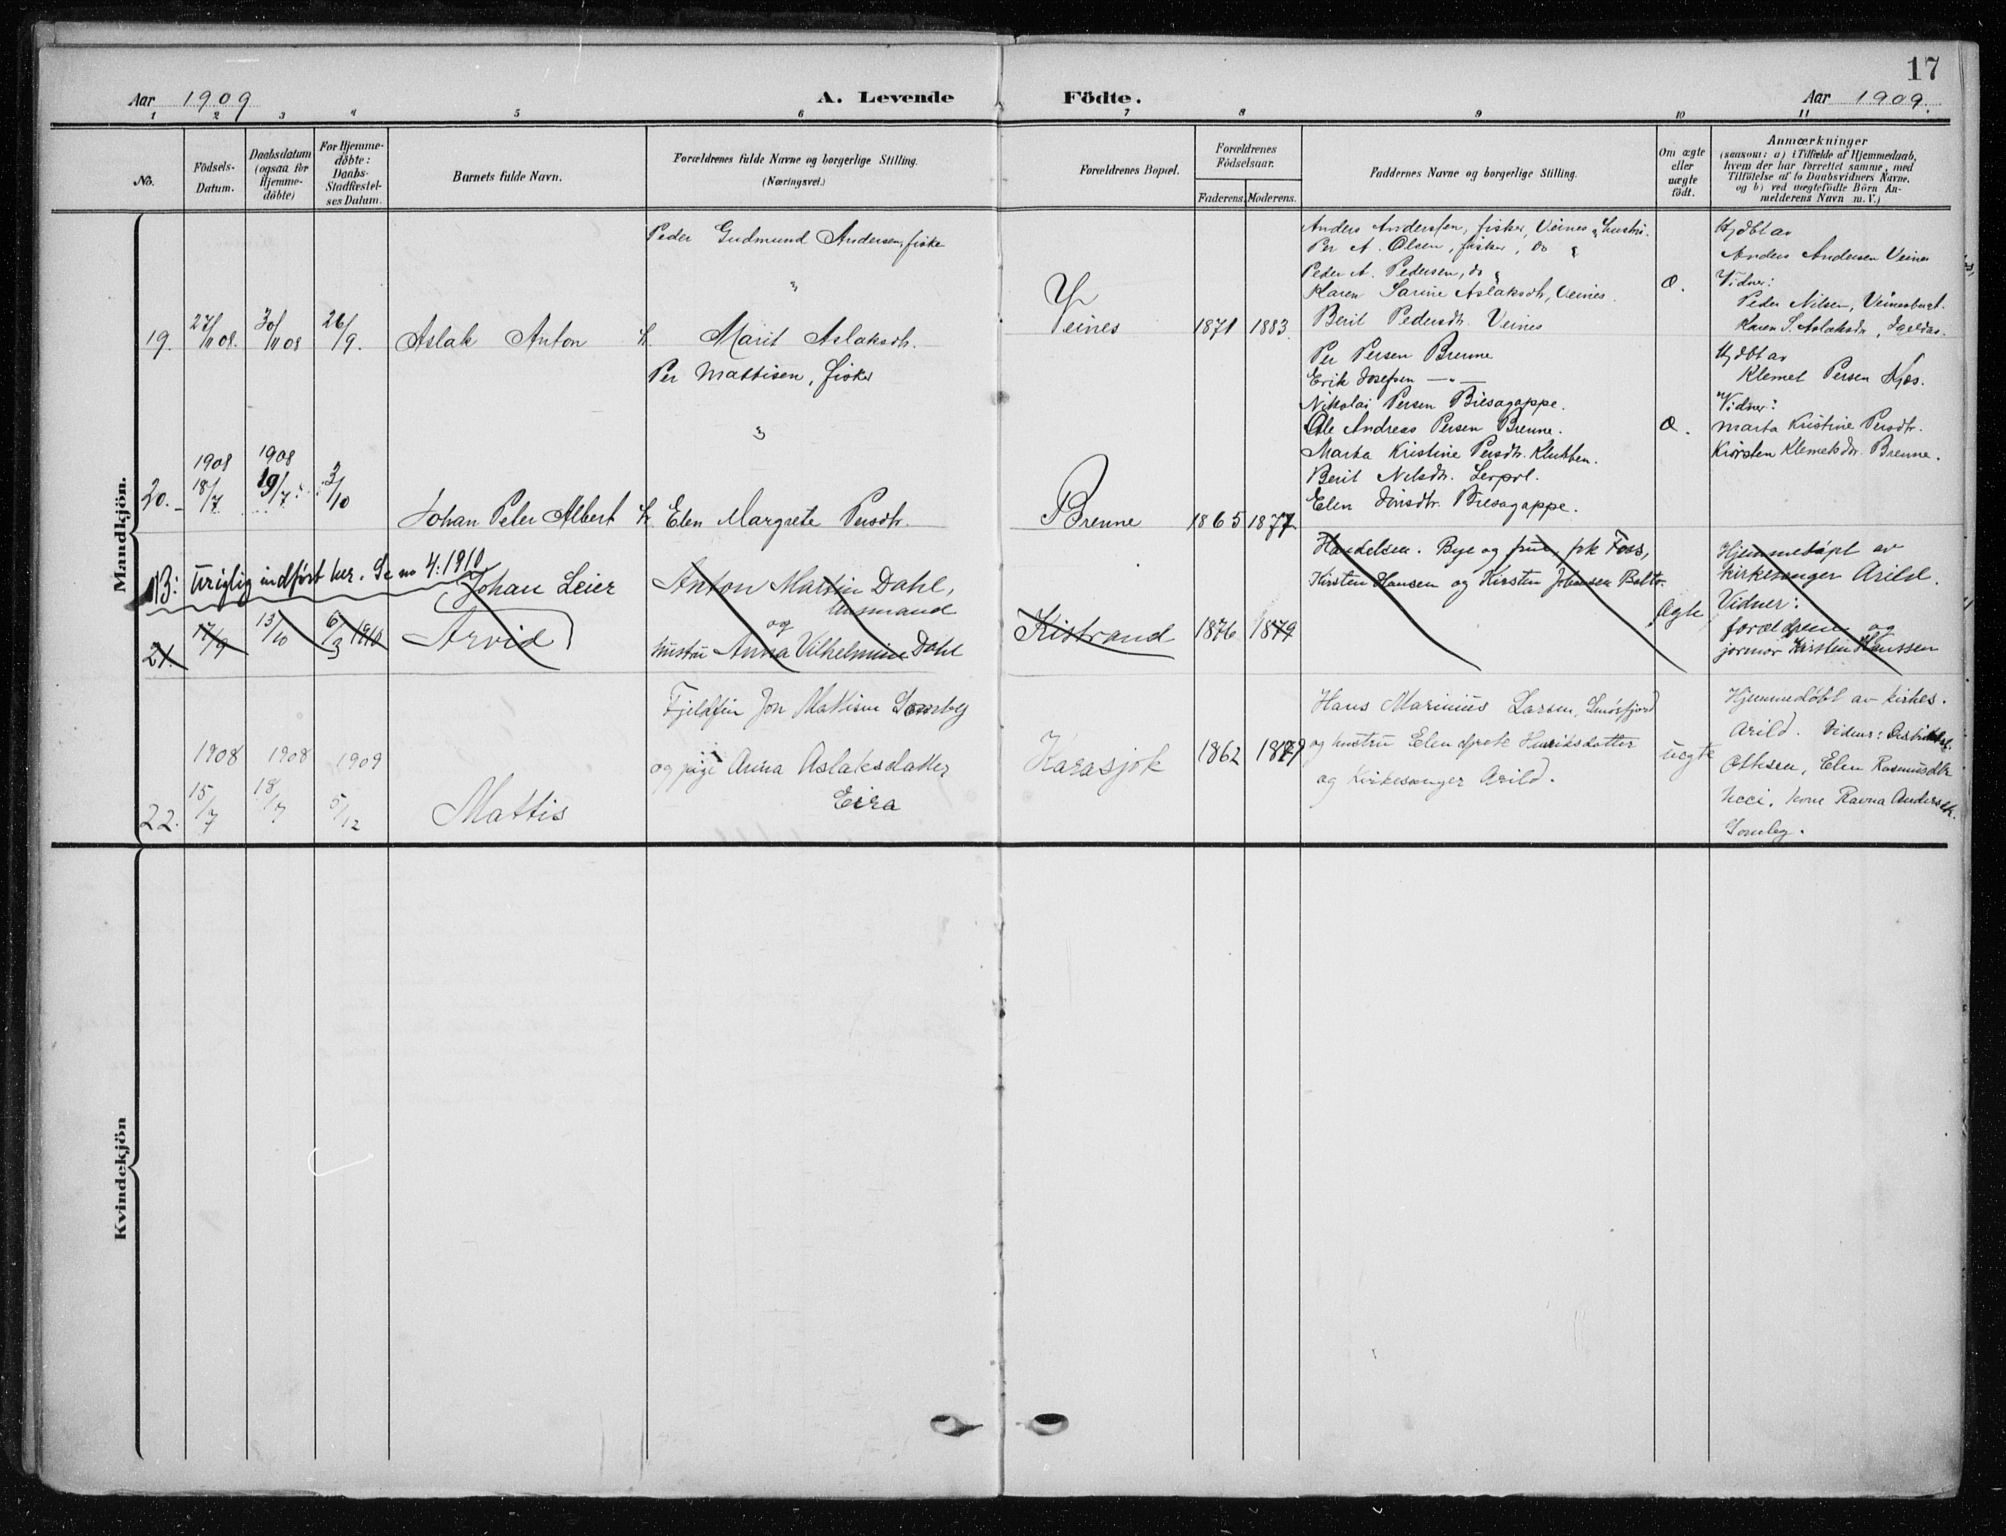 17
Aar 1909
A. Levende Födte.
Aar 1909.
1 2 3 4 5 6 7 8 9 10 11
No.
Födsels-
Datum.
Daabsdatum
(ogsaa for
Hjemme-
döbte)
For Hjemme-
döbte:
Daabs-
Stadfæstel-
ses Datum.
Barnets fulde Navn.
Forældrenes fulde Navne og borgerlige Stilling.
(Næringsvei.)
Forældrenes Bopæl.
Forældrenes
Födselsaar.
Faderens. Moderens.
Faddernes Navne og borgerlige Stilling.
Om ægte
eller
uægte
født.
Anmærkninger
(saasom: a) i Tilfælde af Hjemmedaab,
hvem der har forrettet samme, med
Tilföielse af to Daabsvidners Navne,
og b) ved uægtefödte Börn An-
melderens Navn m. V.)
Mandkjön.
19.
27/11 08.
30/11 08
26/9.
Aslak Anton
Peder Gudmund Andersen, fisker
"
Marit Aslaksdtr.
Veines
1871
1883.
Anders Andersen, fisker, Veines & hustru.
Per A. Olsen, fisker, do "
Peder A. Pedersen, do "
Karen Sarine Aslaksdtr, Veines.
Berit Pedersdtr. Veines
Æ.
Hjdbt av
Anders Andersen Veines
Vidner:
Peder Nilsen, Veinesbugt.
Karen S. Aslaksdtr,
20.
1908
18/7
1908
19/7
3/10
Johan Peter Albert
Per Mattisen, fisker
"
Elen Margrete Persdtr.
Brenne
1865
1877
Per Persen Brenne
Erik Josefsen — " —
Nikolai Persen Biesagappe.
Ole Andreas Persen Brenne.
Marta Kristine Persdtr. Klubben.
Berit Nilsdtr. Lerpol.
Elen Jonsdtr. Biesagappe.
Æ.
Hjdbt av
Klemet Persen Næs.
Vidner:
Marta Kristine Persdtr.
Kirsten Klemetsdtr. Brenne.
NB: Uriglig indført her. Se no 4: 1910
21.
17/9
13/10
6/3 1910
Johan Leier
Arvid
Anton Martin Dahl,
og
hustru Anna Vilhelmine Dahl
Kistrand
1876
1879
Handelsm. Bye og frue, frk Foss,
Kirsten Hansen og Kirsten Johansen Balto.
Ægte
Hjemmedøpt av
kirkesanger Arild.
Vidner:
forældrene og
jormor Kirsten Hanssen
22.
1908
15/7
1908
18/7
1909
5/12
Mattis
Fjeldfin Jon Mattisen Somby
og pige Anna Aslaksdatter
Eira
Karasjok
1862
1879
Hans Marinius Larsen, Smørfjord
og hustru Elen Grete Henriksdatter
og Kirkesanger Arild.
uægte
Hjemmedøbt av kirkes.
Arild. Vidner:
Ottesen, Elen Rasmusdtr
Ucci, kone Ravna Andersdtr.
Somby.
Kvindekjön